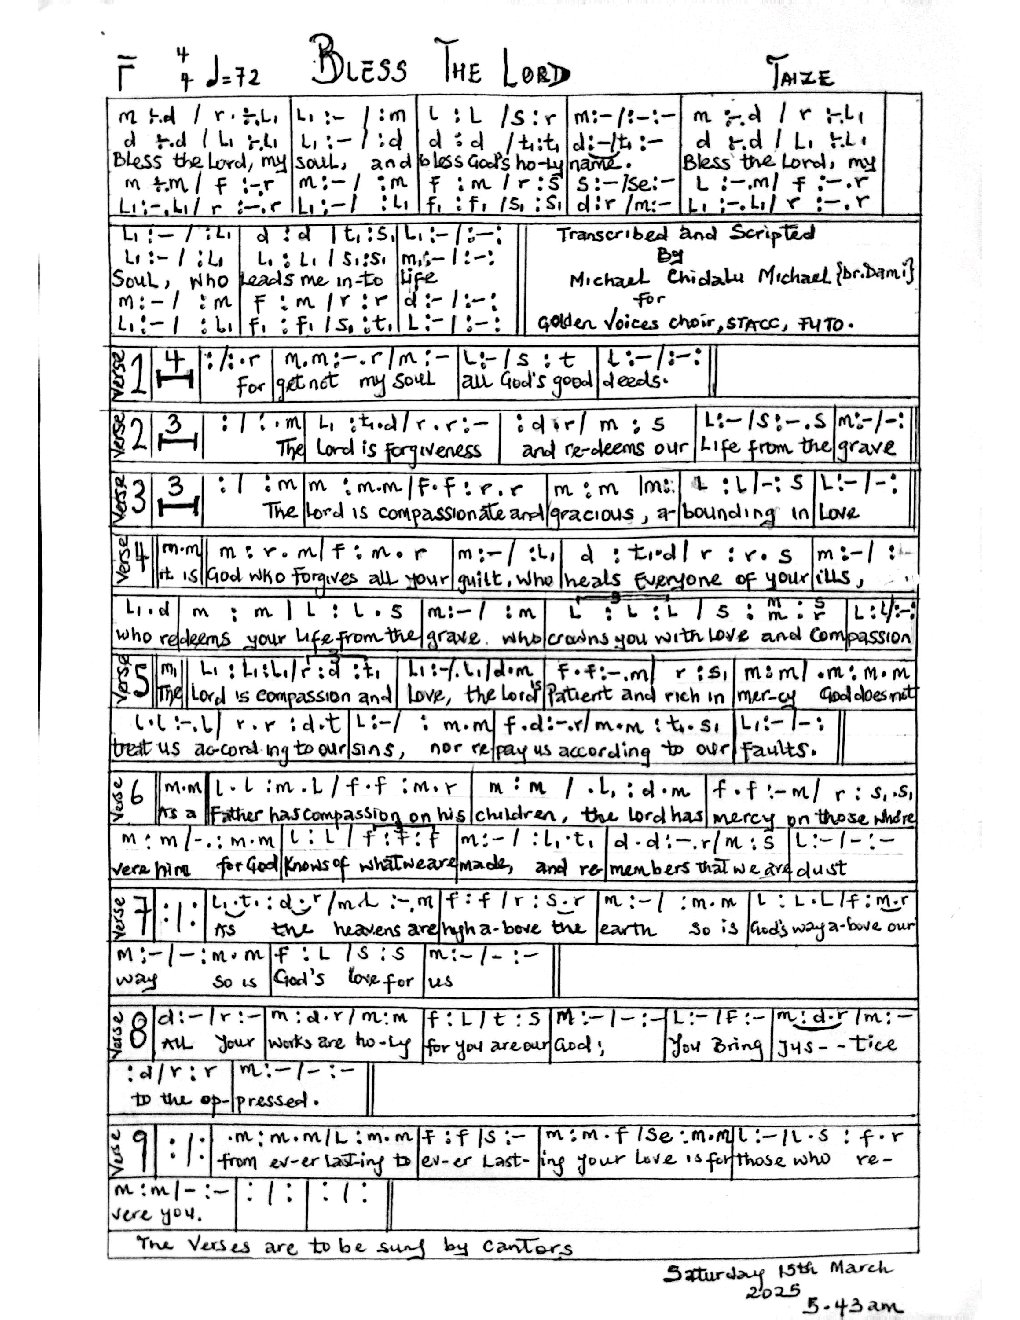 F 4/4 d=72 BLESS THE LORD TAIZE
m :-.d / r . :-.L₁ | L₁ :- / :m | L : L / s : r | m:- /:-:- | m :-.d / r :-.L₁
d :-.d / L₁ :-.L₁ | L₁ :- / :d | d : d / t₁:t₁ | d:-/t₁ :- | d :-.d / L₁ :-.L₁
Bless the Lord, my | soul, and | bless God's ho-ly | name. | Bless the Lord, my
m :-.m / f :-.r | m:- / :m | f : m / r : s | s:-/se:- | L :-.m / f :-.r
L₁:-.L₁/ r :-.r | L₁:-/ :L₁ | f₁ : f₁ /s₁ : s₁ | d:r /m:- | L₁ :-.L₁/ r :-.r
L₁ :- / :L₁ | d : d / t₁ : s₁ | L₁ :- / :-: Transcribed and Scripted
L₁ :- / :L₁ | L₁ : L₁ / s₁:s₁ | m₁:-/:-: By
Soul, who | leads me in-to | life Michael Chidalu Michael {Dr.Dami}
m:-/ :m | F : m / r : r | d :-/:-: for
L₁ :- / :L₁ | f₁ : f₁ / s₁ : t₁ | L :-/:-: Golden Voices choir, STACC, FUTO.
Verse 1 | 4 | :/:.r | m.m:-.r/m :- | L:-/ s : t | L :-/:-:
For | get not my soul | all God's good | deeds.
Verse 2 | 3 | : / :.m | L₁ :t₁.d/r.r:- | :d.r/ m : s | L:-/s:-.s | m:-/-:
The | Lord is forgiveness | and re-deems our | Life from the | grave
Verse 3 | 3 | :/ :m | m :m.m /F.F : r.r | m : m /m: | L : L/-: s | L:-/-:
The | Lord is compassionate and | gracious, a- | bounding in | Love
Verse 4 | m.m | m : r.m/ f : m.r | m:-/ :L₁ | d : t₁.d/ r : r.s | m:-/ :-
it is | God who forgives all your | guilt, who | heals Everyone of your | ills,
L₁.d | m : m / L : L.s | m:-/ :m | L : L : L / s : m m : s r | L : L/:-:
who re | deems your life from the | grave. who | crowns you with love and com | passion
Verse 5 | m₁ | L₁ : L₁:L₁/r : d : t₁ | L₁ :-/.L₁/d.m | F.F:-.m/ r : s₁ | m:m/ .m : m.m
The | Lord is compassion and | love, the Lord is | Patient and rich in | mer-cy God does not
L.L :-.L/ r.r : d.t | L:-/ : m.m | f.d:-.r/m.m : t₁.s₁ | L₁:-/-:
treat us ac-cord ing to our | sins, nor re | pay us according to our | faults.
Verse 6 | m.m | L.L :m.L / f.f :m.r | m : m / .L₁ : d.m | f.f :-m/ r : s₁.s₁
As a | Father has compassion on his | children, the lord has | mercy on those who re
m : m/-.: m.m | L : L / f : f : f | m:-/ :L₁.t₁ | d.d:-.r/m : s | L:-/-:-
vere him for God | Knows of what we are | made, and re- | members that we are | dust
Verse 7 | :/: | L₁.t₁ : d.r /m.L :-.m | f : f / r : s.r | m :-/ :m.m | L : L.L/f : m.r
As the heavens are | high a-bove the | earth so is | God's way a-bove our
m:-/-:m.m | f : L /s : s | m:-/-:-
way so is | God's love for | us
Verse 8 | d:-/r:- | m:d.r/m:m | f : L/ t : s | m:-/-:- | L:-/F:- | m:d.r/m:-
All your | works are ho-ly | for you are our | God; | You Bring | Jus--tice
:d/r:r | m:-/-:-
to the op- | pressed.
Verse 9 | :/: | .m : m.m/L : m.m | f : f /s :- | m:m.f /se :m.m | L:-/L.s : f.r
from ev-er last-ing to | ev-er Last- | ing your love is for | those who re-
m:m/-:- | :/: | :/:
vere you.
The Verses are to be sung by Cantors
Saturday 15th March
2025
5.43am